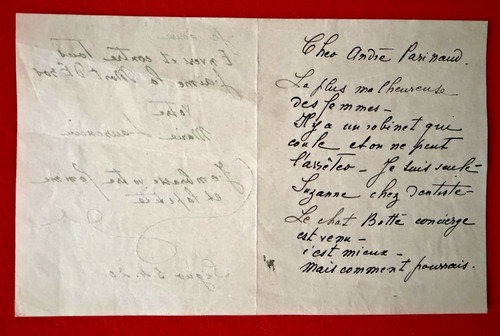 Cher André Parinaud.
La plus malheureuse
des femmes –
Il y a un robinet qui
coule et on ne peut
l'arrêter – Je suis seule
Suzanne chez dentiste
Le chat Botté concierge
est venu –
c'est mieux –
Mais comment pourrais.
Envers et contre tous
J'aime la Mort d'Eros
Votre
Marie Laurencin
J'embrasse votre femme